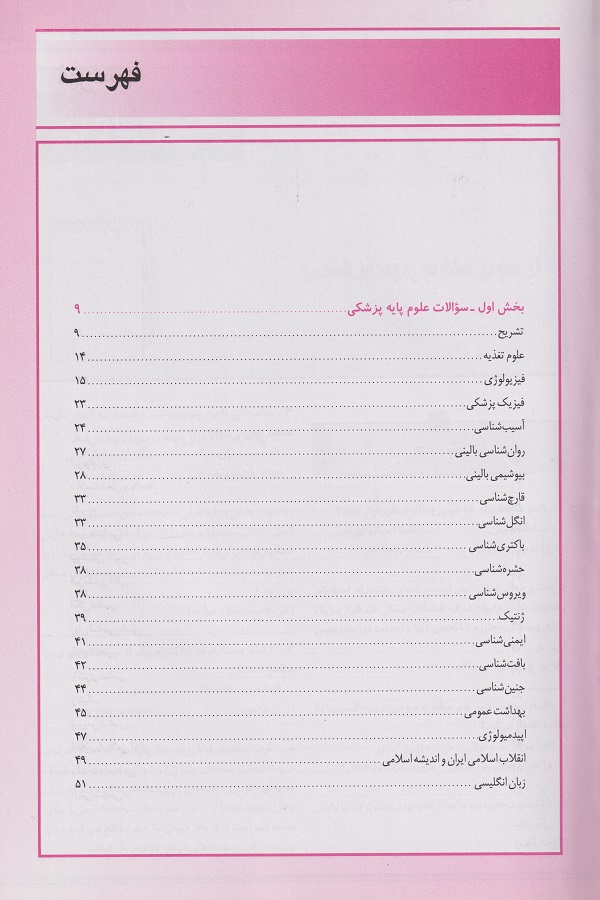 فهرست
بخش اول ـ سؤالات علوم پایه پزشکی ........ ۹
تشریح ........ ۹
علوم تغذیه ........ ۱۴
فیزیولوژی ........ ۱۵
فیزیک پزشکی ........ ۲۳
آسیب‌شناسی ........ ۲۴
روان‌شناسی بالینی ........ ۲۷
بیوشیمی بالینی ........ ۲۸
قارچ‌شناسی ........ ۳۳
انگل‌شناسی ........ ۳۳
باکتری‌شناسی ........ ۳۵
حشره‌شناسی ........ ۳۸
ویروس‌شناسی ........ ۳۸
ژنتیک ........ ۳۹
ایمنی‌شناسی ........ ۴۱
بافت‌شناسی ........ ۴۲
جنین‌شناسی ........ ۴۴
بهداشت عمومی ........ ۴۵
اپیدمیولوژی ........ ۴۷
انقلاب اسلامی ایران و اندیشه اسلامی ........ ۴۹
زبان انگلیسی ........ ۵۱